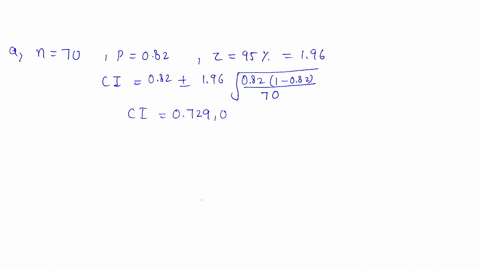 a, n = 70 , P = 0.82 , z = 95 % = 1.96
CI = 0.82 ± 1.96 √(0.82 (1-0.82) / 70)
CI = 0.729, 0